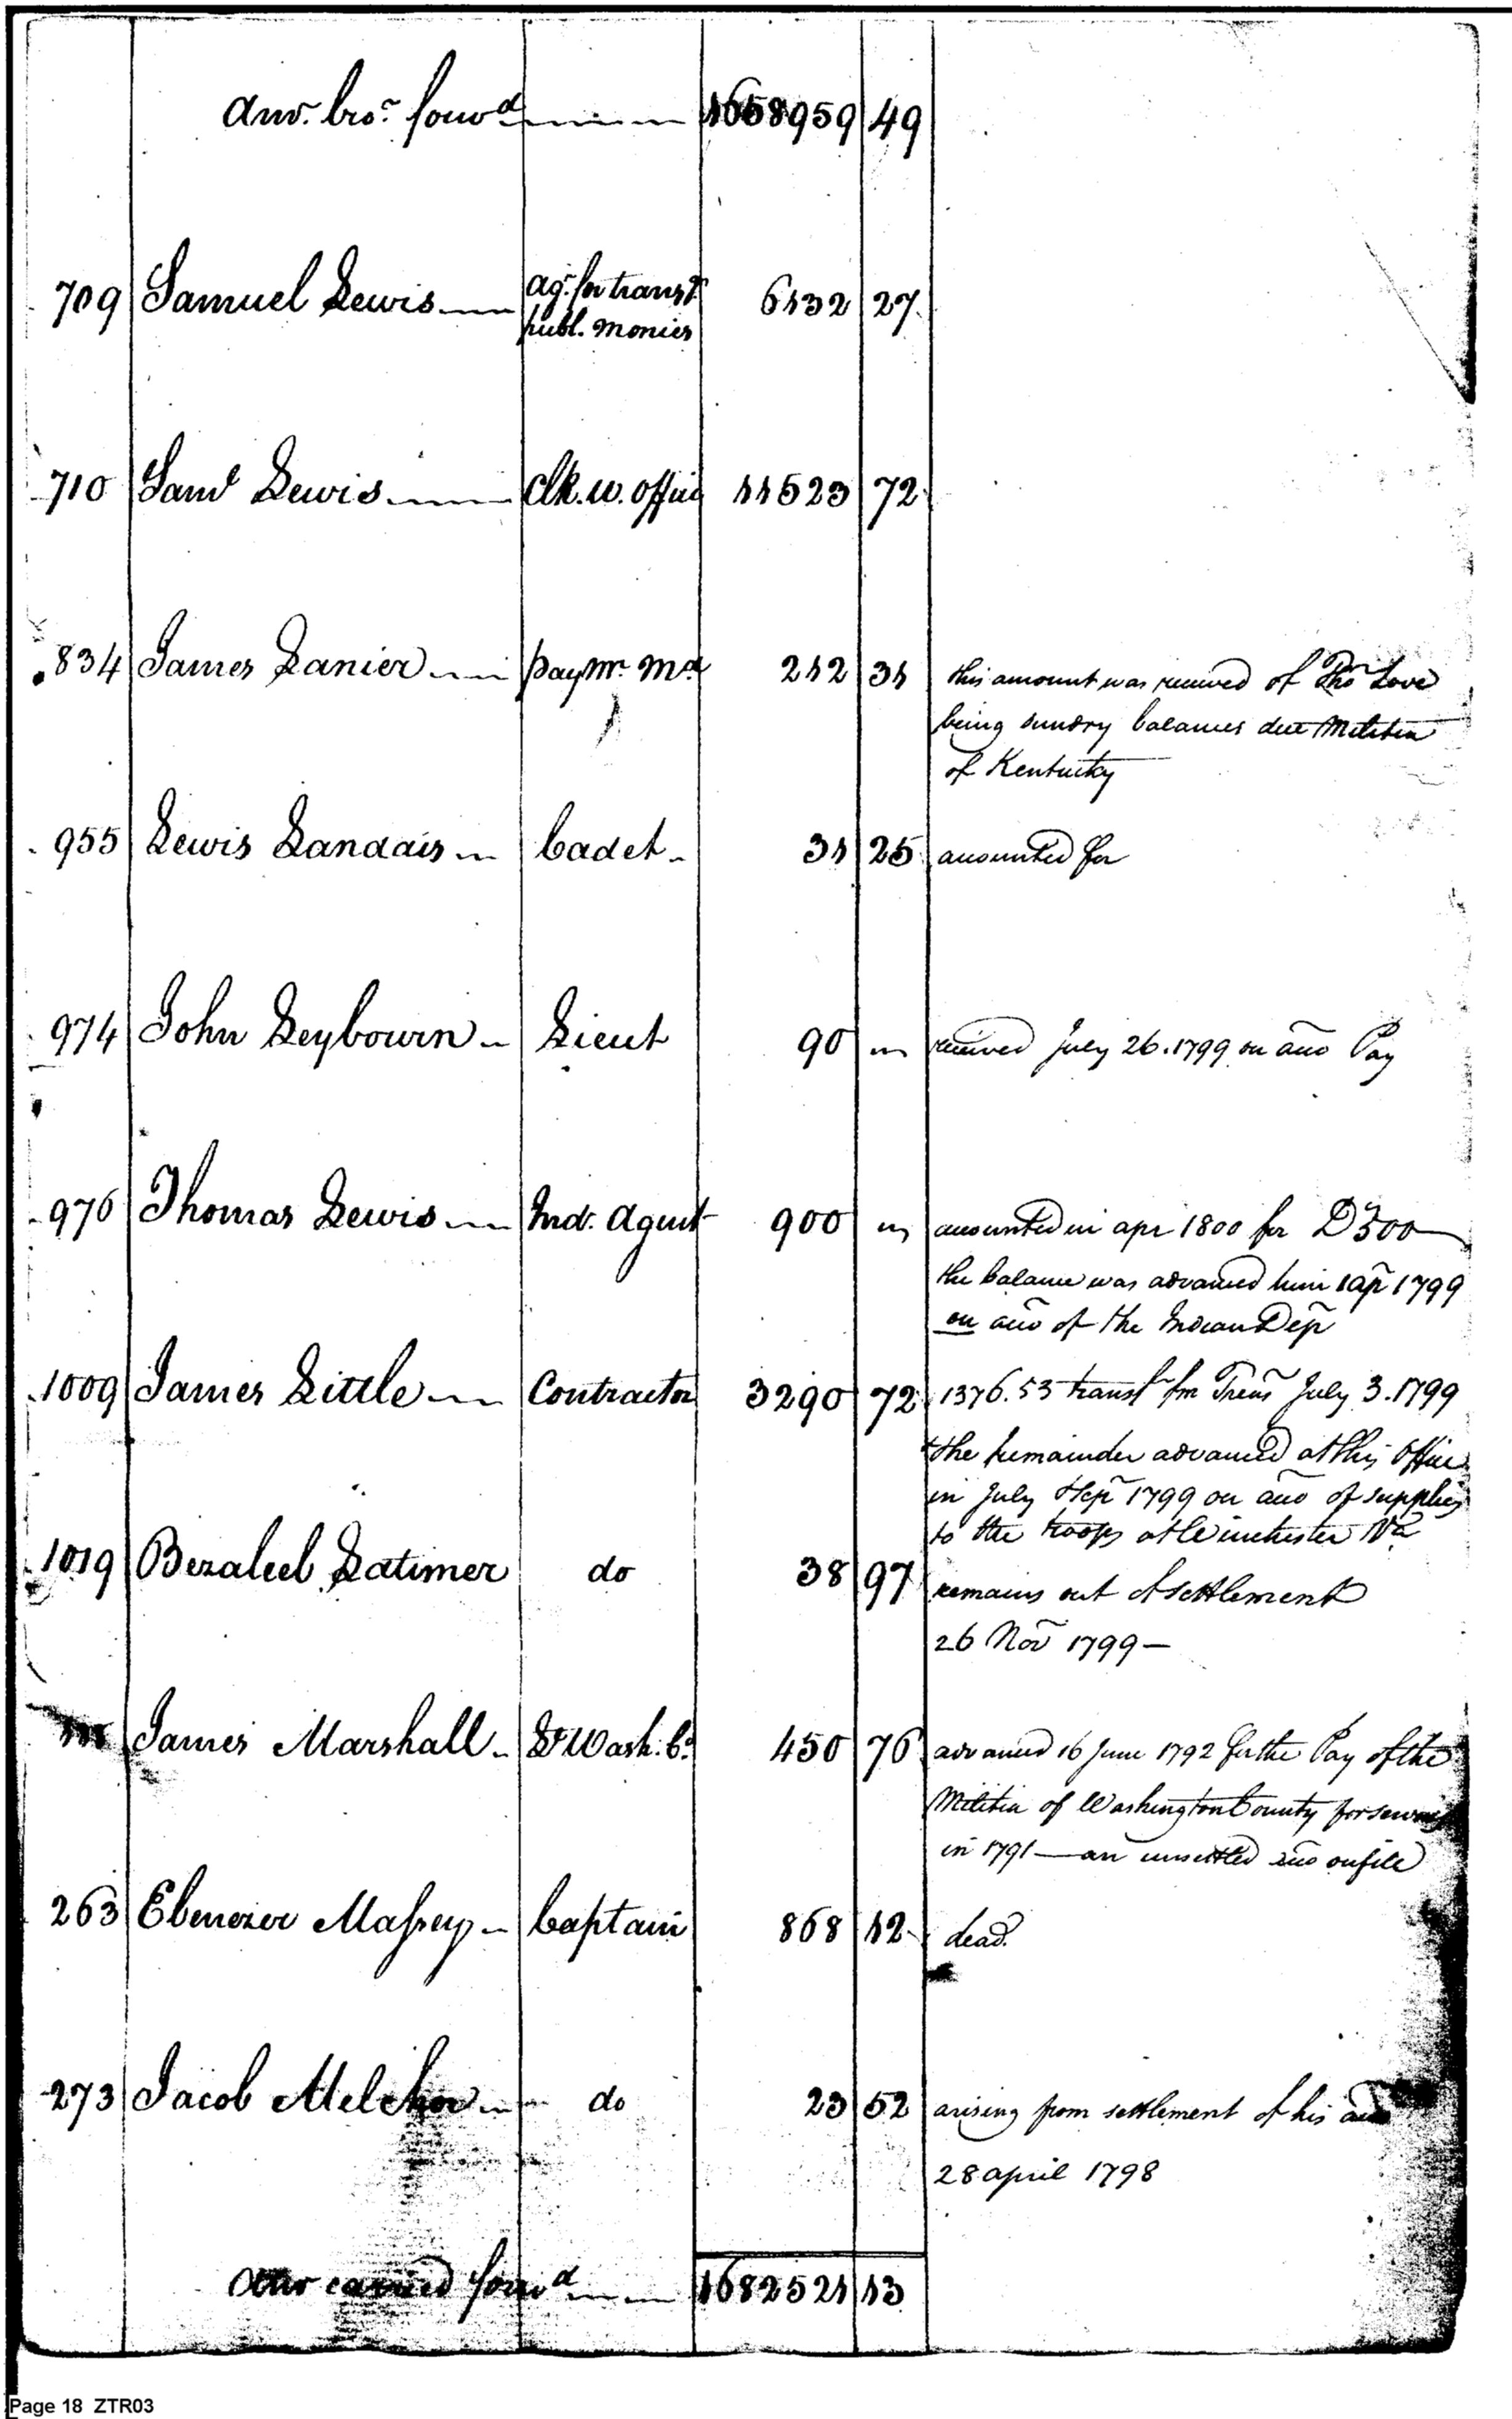 Amt. bro.t forw.d 1658959 49
709 Samuel Lewis Ag.t for trans.g 6132 27
publ. monies
710 Sam.l Lewis Clk. W. Office 11523 72
834 James Lanier paym.r M.a 212 31 this amount was received of Tho Love
being sundry balances due Militia
of Kentucky
955 Lewis Landais Cadet 31 25 accounted for
974 John Leybourn Lieut 90 received July 26. 1799 on acco Pay
976 Thomas Lewis Ind. Agent 900 accounted in apr 1800 for D 300
the balance was advanced him 1 apr 1799
on acco of the Indian Dep
1009 James Little Contractor 3290 72 1376.53 transf.d fm Treas July 3. 1799
the remainder advanced at this Office
in July & Sep 1799 on acco of supplies
to the troops at Winchester Va
1019 Bezaleel Latimer do 38 97 remains out of settlement
26 Nov 1799 —
James Marshall Lt Wash. Co. 450 76 advanced 16 June 1792 for the Pay of the
Militia of Washington County for services
in 1791 — an unsettled acco on file
263 Ebenezer Massey Captain 868 12 dead.
273 Jacob Melcher do 23 52 arising from settlement of his acco
28 april 1798
Amt carried forw.d 1682521 13
Page 18 ZTR03